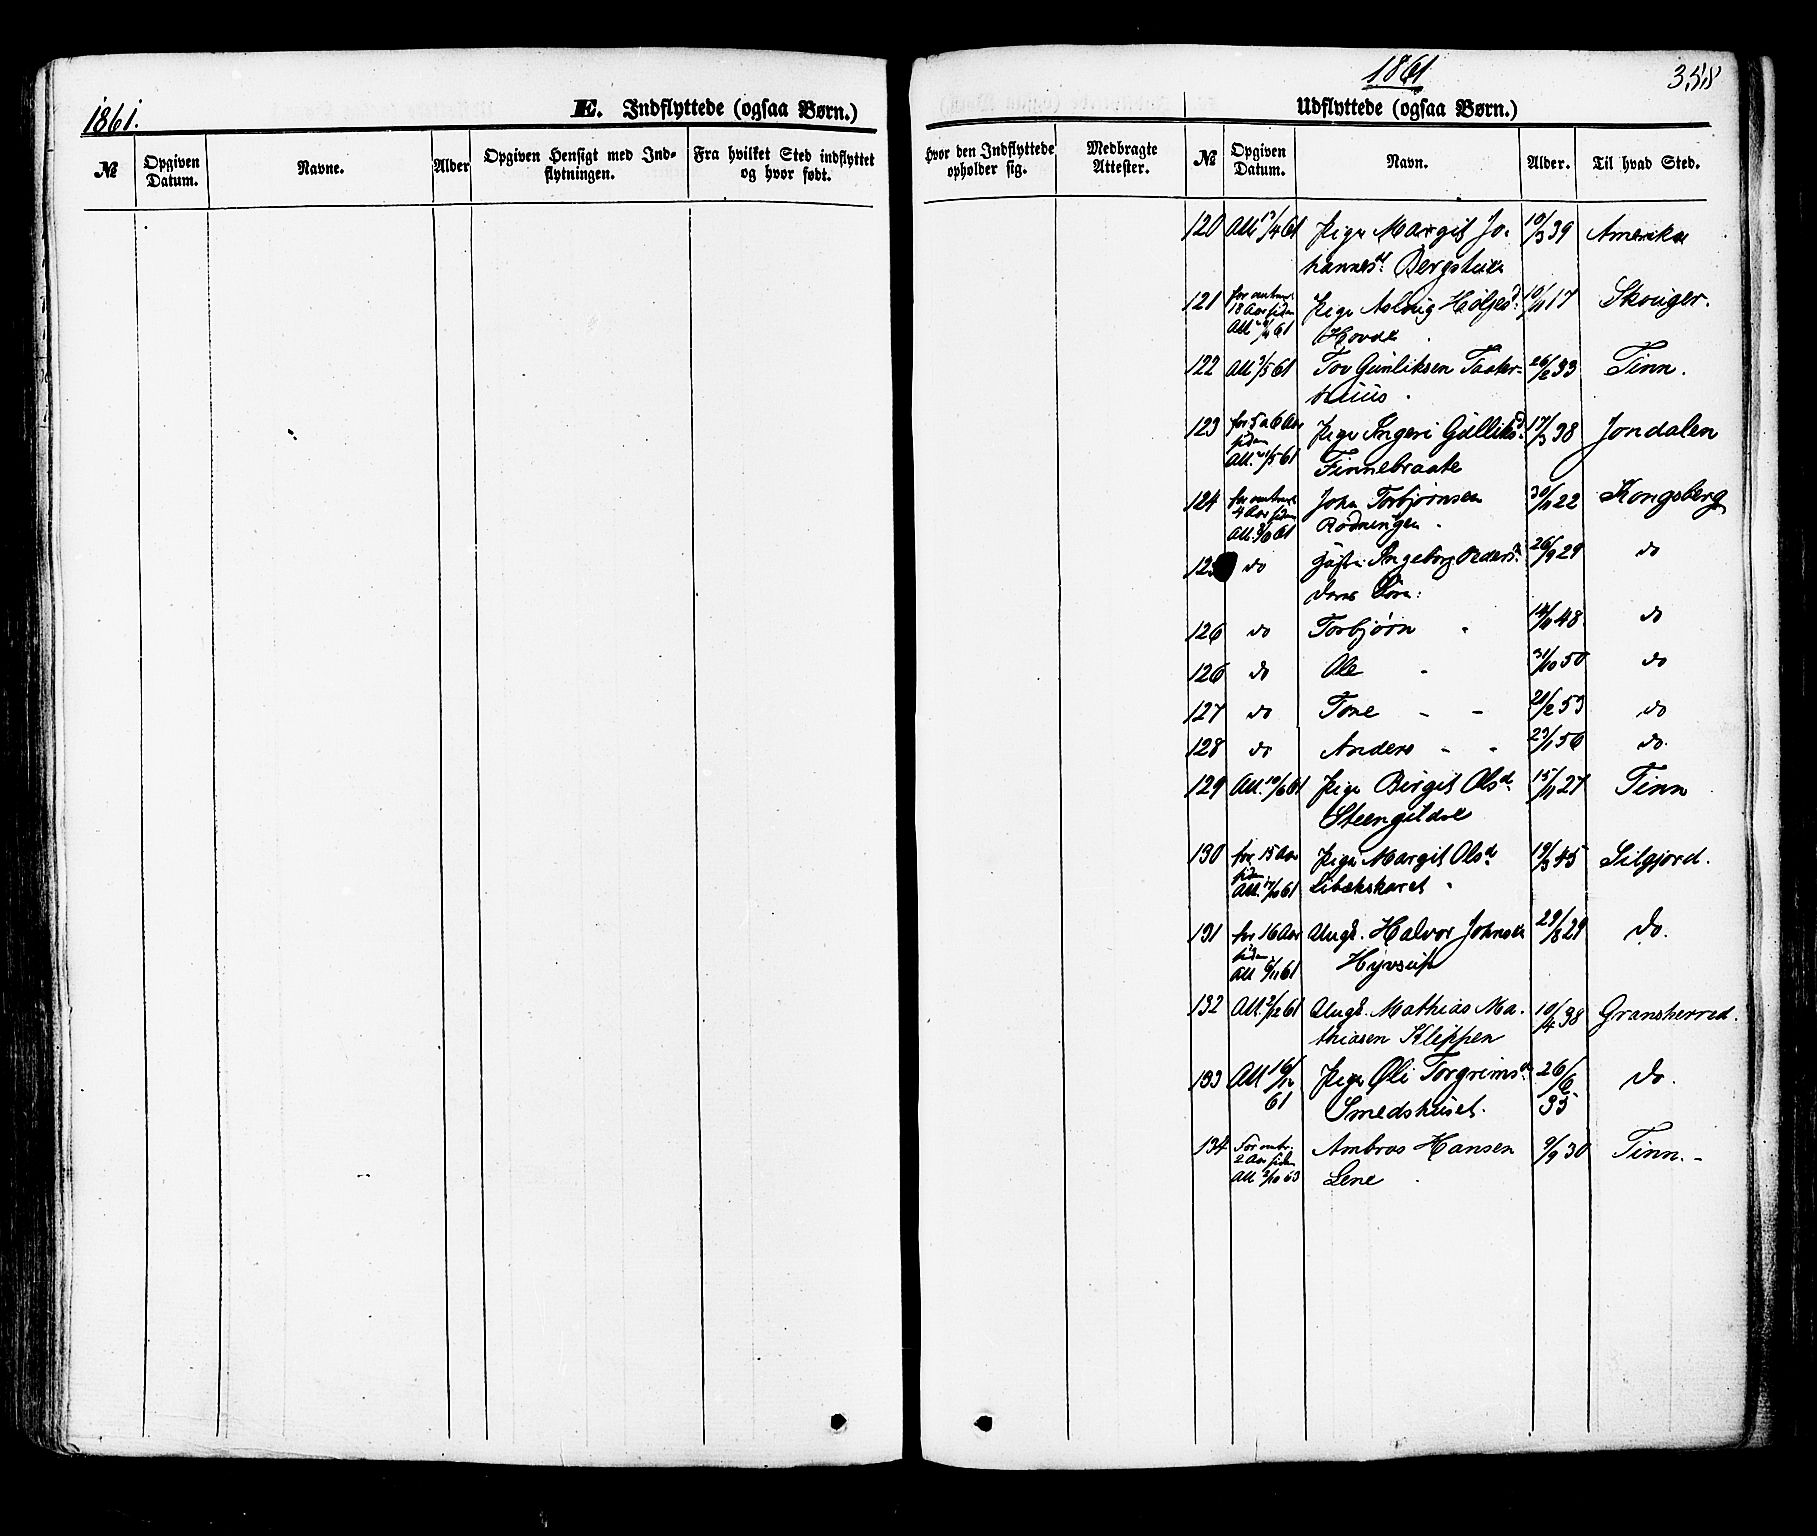 1861.
E. Indflyttede (ogsaa Børn.)
№
Opgiven Datum.
Navne.
Alder
Opgiven Hensigt med Ind-
flytningen.
Fra hvilket Sted indflyttet
og hvor født.
1861
358
Udflyttede (ogsaa Børn.)
Hvor den Indflyttede
opholder sig.
Medbragte
Attester.
№
Opgiven
Datum.
Navn.
Alder.
Til hvad Sted.
120 Att 13/4 61 Pige Margit Jo- 10/3 39 Amerika
hannesd. Bergstue
121 for omtrent Pige Aslaug Høljesd. 10/11 17 Skouger.
18 Aar siden
Att 61 Hovde
122 Att 3/5 61 Tov Gunliksen Taaker- 26/2 33 Tinn.
huus.
123 for 5 a 6 Aar Pige Ingeri Gulliksd. 17/3 38 Jondalen
siden
Att. /5 61 Finnebraate
124 for omtrent John Torbjørnsen 30/11 22 Kongsberg
4 Aar siden
Att. 61 Rødningen.
125 do Ingeborg Pedersd. 26/9 29 do
deres Børn:
126 do Torbjørn " 14/11 48 do
126 do Ole " 31/10 50 do
127 do Tone " " 20/2 53 do
128 do Anders " " 23/1 56 do.
129 Att. 10/6 61 Pige Birgit Olsd. 15/11 27 Tinn
Steengildre
130 for 15 Aar Pige Margit Olsd. 19/3 45 Silgjord.
siden
Att. 17/10 61 Libækskaret.
131 for 16 Aar Ungk. Halvor Johnsen 29/8 29 do.
siden
Att 6/11 61 Hyvsup
132 Att. 2/12 61 Ungk. Mathias Ma- 10/4 38 Gransherred.
thiasen Kleppen
133 Att 16/12 Pige Øli Torgrimsd. 26/6 do.
61 Smedshuset. 35
134 For omtr. Ambros Hansen 9/9 30 Tinn. -
2 Aar siden
Att 2/10 63 Lene.